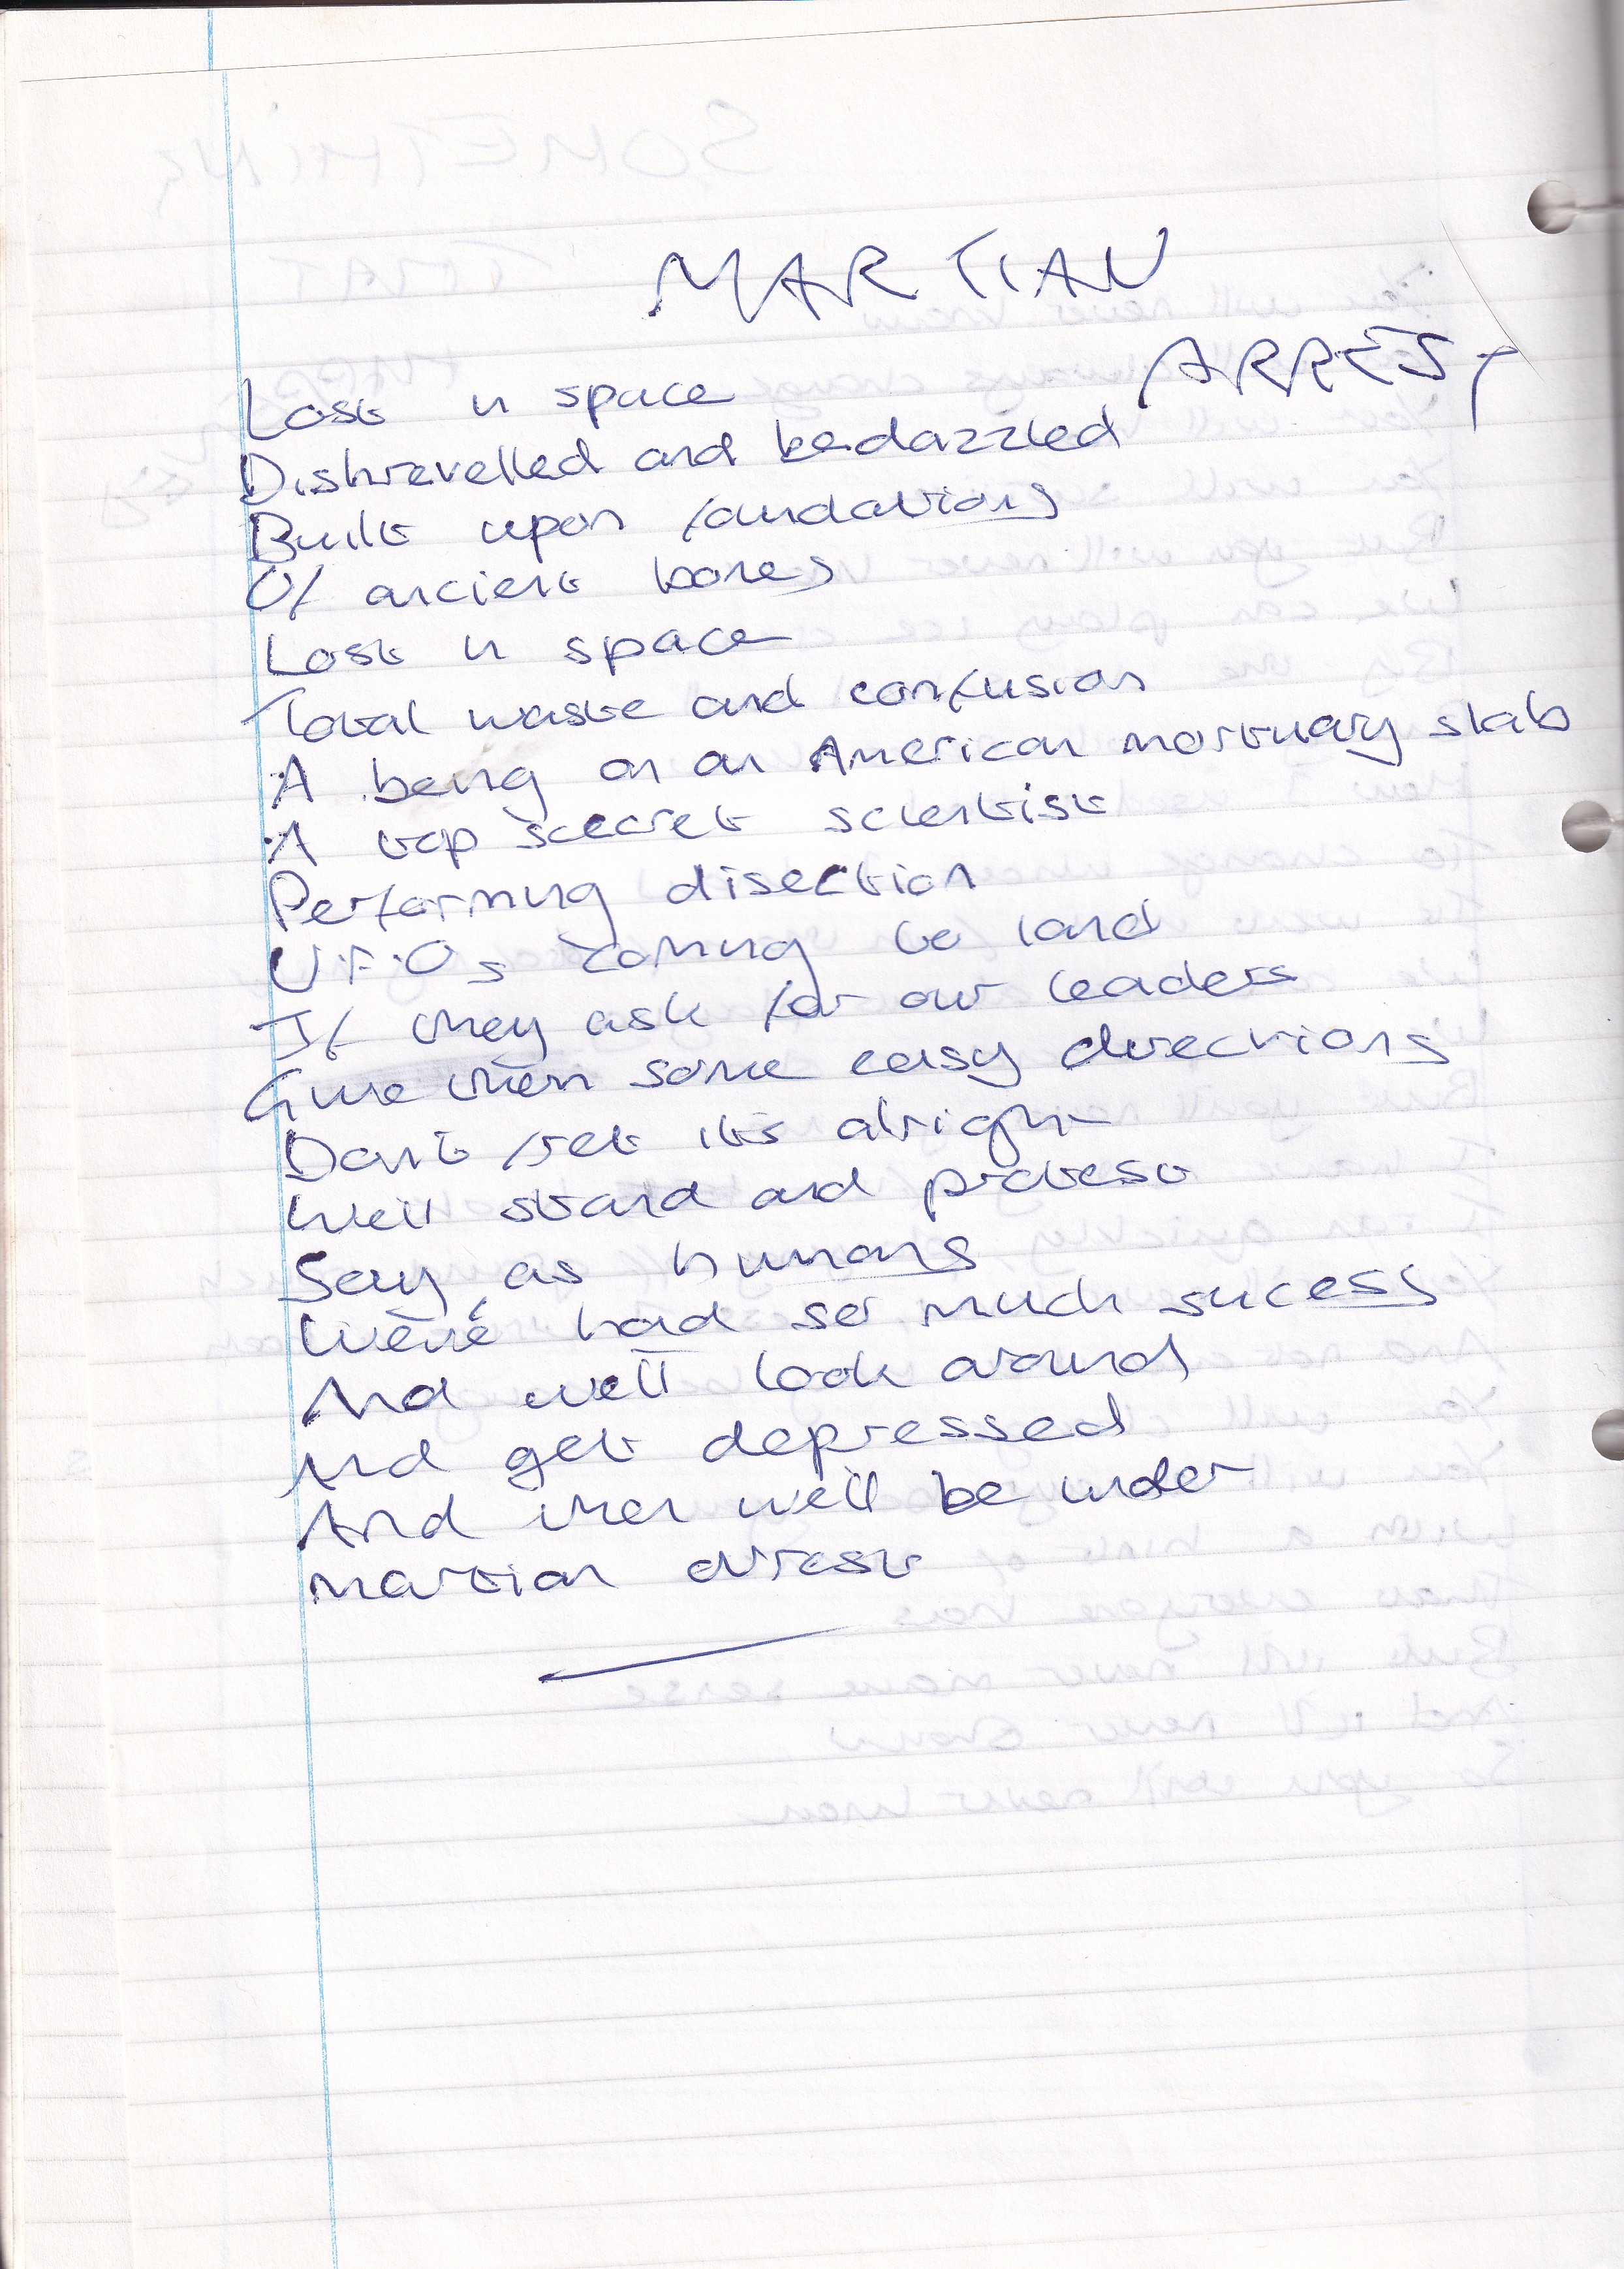 MARTIAN
ARREST
Lost in space
Dishrevelled and bedazzled
Built upon foundations
Of ancient bones
Lost in space
Total waste and confusion
A being on an American mortuary slab
A top secret scientist
Performing disection
U.F.Os coming to land
If they ask for our leaders
Give them some easy directions
Don't fret its alright
We'll stand and protest
Say as humans
We've had so much sucess
And we'll look around
And get depressed
And then we'll be under
martian arrest